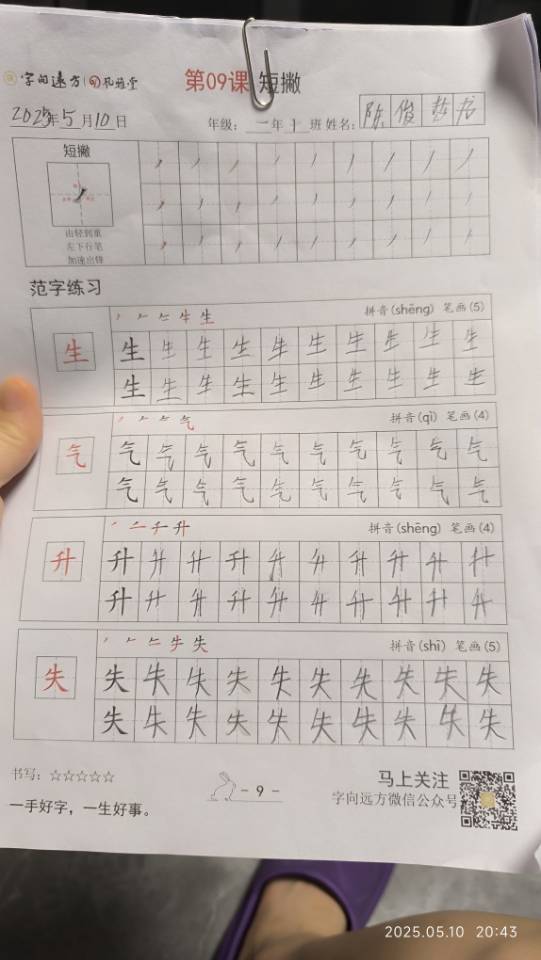 字向远方
第09课 短撇
2025年5月10日
年级：一年十班 姓名：陈俊哲
短撇
由轻到重
左下行笔
加速出锋
范字练习
拼音(shēng) 笔画(5)
生 生 生 生 生 生 生 生 生 生 生
生 生 生 生 生 生 生 生 生 生
拼音(qì) 笔画(4)
气 气 气 气 气 气 气 气 气 气 气
气 气 气 气 气 气 气 气 气 气
拼音(shēng) 笔画(4)
升 升 升 升 升 升 升 升 升 升 升
升 升 升 升 升 升 升 升 升 升
拼音(shī) 笔画(5)
失 失 失 失 失 失 失 失 失 失 失
失 失 失 失 失 失 失 失 失 失
书写：☆☆☆☆☆
一手好字，一生好事。
- 9 -
马上关注
字向远方微信公众号
2025.05.10 20:43